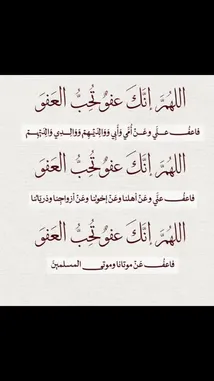 اللهُمَّ إنَّكَ عفوٌ تُحِبُّ العَفوَ
فاعفُ عنِّي وعَنْ أُمِّي وَأَبِي وَوَالِدَيْهِمْ وَوَالِدِي وَالِدَيْهِمْ
اللهُمَّ إنَّكَ عفوٌ تُحِبُّ العَفوَ
فاعفُ عنِّي وعَنْ أهلنا وعَنْ إخوتنا وعَنْ أزواجِنا وذرياتنا
اللهُمَّ إنَّكَ عفوٌ تُحِبُّ العَفوَ
فاعفُ عَنْ موتانا وموتى المسلمين